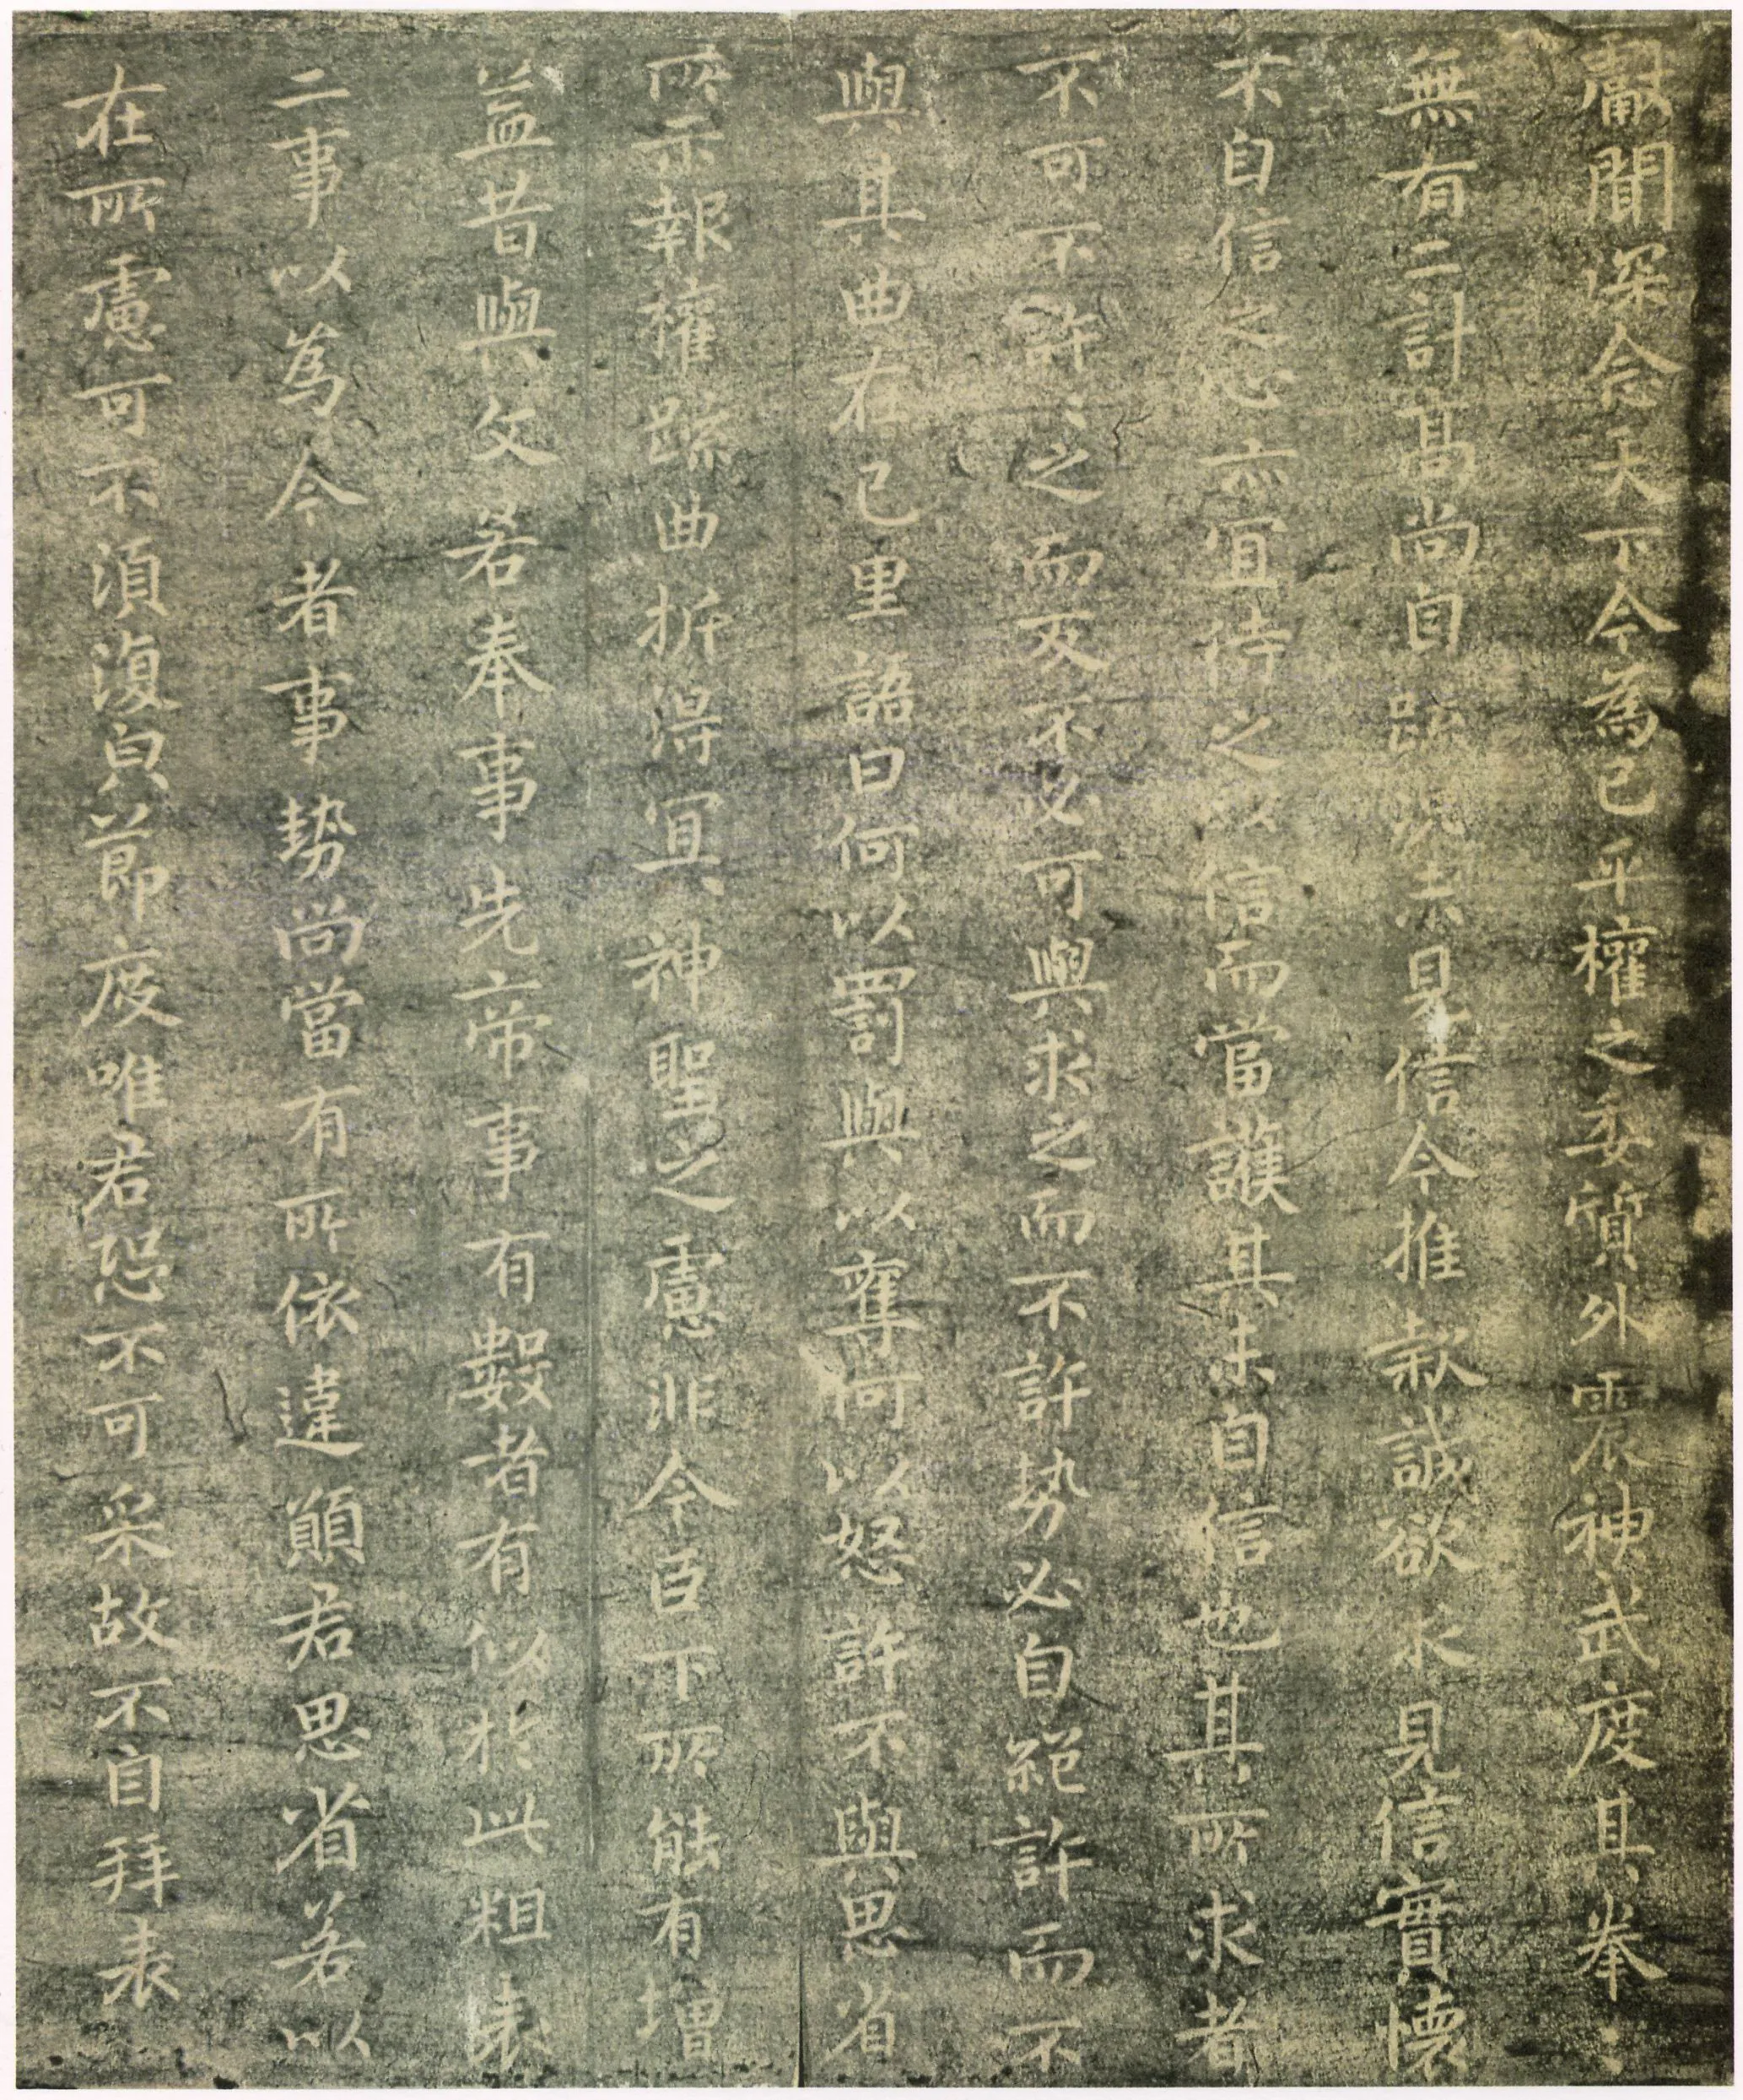 獻聞深念天下今為已平權之委質外震神武度其拳〻
無有二計高尚自疏況未見信今推款誠欲求見信實懷
不自信之心亦宜待之以信而當護其未自信也其所求者
不可不許〻之而反不必可與求之而不許勢必自絕許而不
與其曲在己里語曰何以罰與以奪何以怒許不與思省
所示報權疏曲折得宜神聖之慮非今臣下所能有增
益昔與文若奉事先帝事有數者有似於此粗表
二事以為今者事勢尚當有所依違願君思省若以
在所慮可不須復皃節度唯君恐不可采故不自拜表